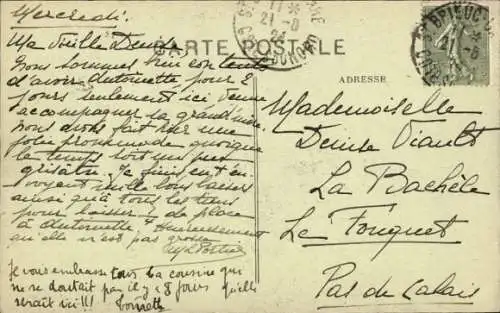 Mercredi.
Ma Vieille Denise
Nous sommes bien contents
d'avoir Antoinette pour 2
jours seulement ici venue
accompagner sa grand'mère.
nous avons fait hier une
jolie promenade quoique
le temps soit un peu
grisâtre. Je finis en t'en-
voyant mille bons baisers
ainsi qu'à tous les tiens
pour laisser de place
à Antoinette. Heureusement
qu'elle n'est pas grosse
Je vous embrasse tous. La cousine qui
ne se doutait pas il y a 8 jours qu'elle
serait ici !!! Toinette
CARTE POSTALE
ADRESSE
21-8
24
ST BRIEUC
21-8
Mademoiselle
Denise Viault
La Bachèle
Le Fouquet
Pas de Calais